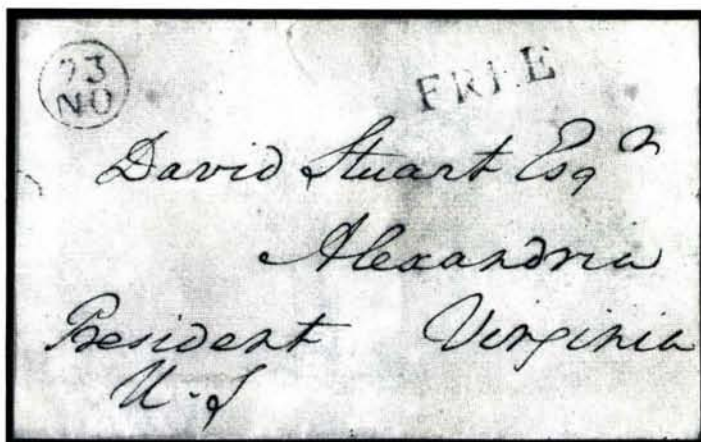 23
NO
FREE
David Stuart Esqr
Alexandria
President Virginia
U.S